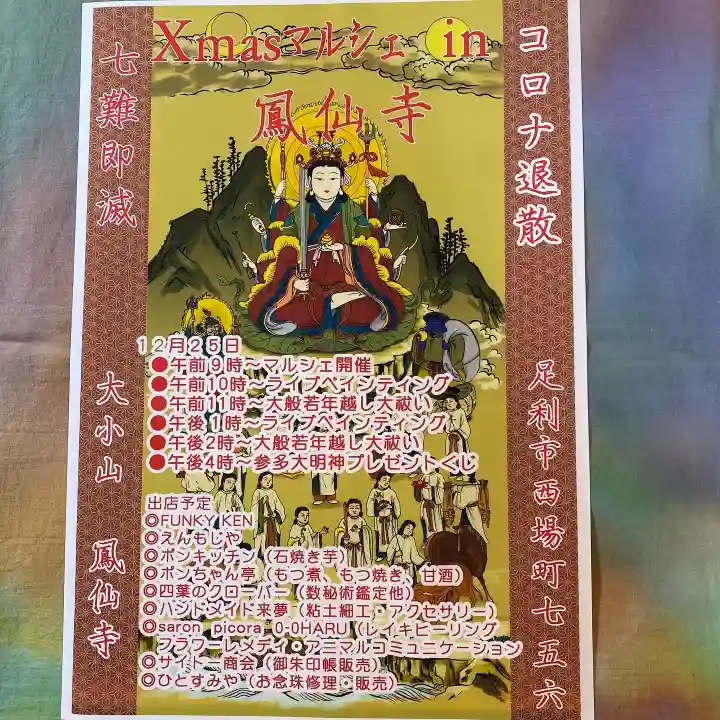 Xmasマルシェ in
鳳仙寺
コロナ退散
七難即滅
12月25日
●午前9時～マルシェ開催
●午前10時～ライブペインティング
●午前11時～大般若年越し大祓い
●午後1時～ライブペインディング
●午後2時～大般若年越し大祓い
●午後4時～参多大明神プレゼントくじ
出店予定
◎FUNKY KEN
◎えんもじや
◎ポンキッチン（石焼き芋）
◎ポンちゃん亭（もつ煮、もつ焼き、甘酒）
◎四葉のクローバー（数秘術鑑定他）
◎ハンドメイド来夢（粘土細工・アクセサリー）
◎saron picora 0-0HARU（レイキヒーリング
フラワーレメディ・アニマルコミュニケーション
◎サイトー商会（御朱印帳販売）
◎ひとすみや（お念珠修理・販売）
大小山 鳳仙寺
足利市西場町七五六